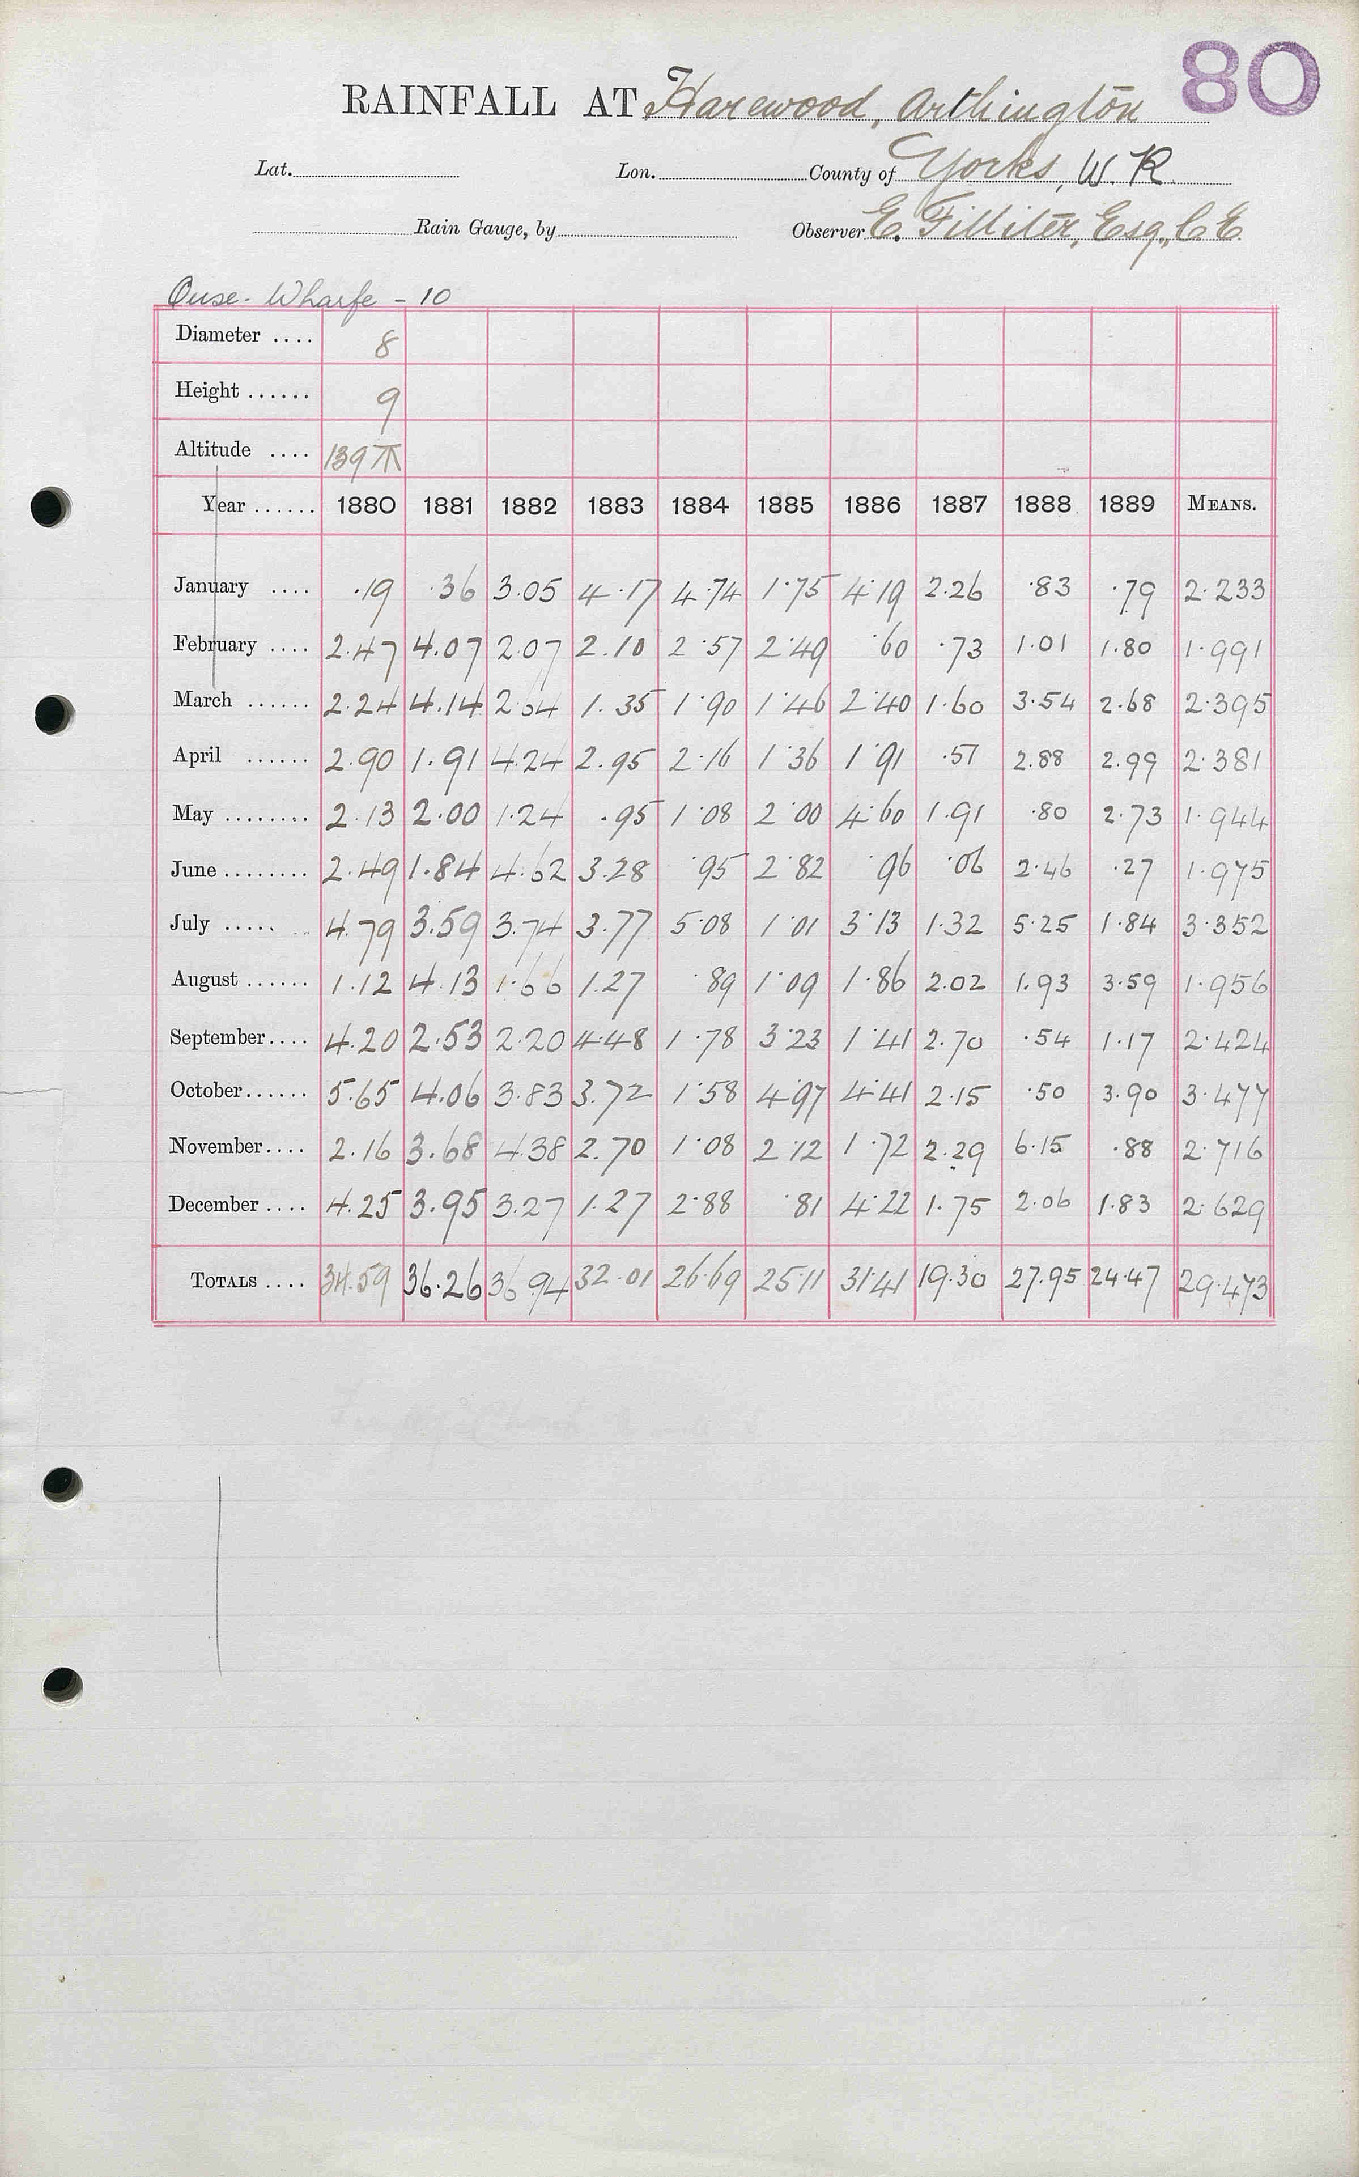 80
RAINFALL AT Harewood, Arthington
Lat. Lon. County of Yorks, W. R.
Rain Gauge, by Observer E. Filliter, Esq., C.E.
Ouse - Wharfe - 10
Diameter .... 8
Height ...... 9
Altitude .... 139
Year ...... 1880 1881 1882 1883 1884 1885 1886 1887 1888 1889 MEANS.
January .... .19 .36 3.05 4.17 4.74 1.75 4.19 2.26 .83 .79 2.233
February .... 2.47 4.07 2.07 2.10 2.57 2.49 .60 .73 1.01 1.80 1.991
March ...... 2.24 4.14 2.64 1.35 1.90 1.46 2.40 1.60 3.54 2.68 2.395
April ...... 2.90 1.91 4.24 2.95 2.16 1.36 1.91 .51 2.88 2.99 2.381
May ........ 2.13 2.00 1.24 .95 1.08 2.00 4.60 1.91 .80 2.73 1.944
June ........ 2.49 1.84 4.62 3.28 .95 2.82 .96 .06 2.46 .27 1.975
July ..... 4.79 3.59 3.74 3.77 5.08 1.01 3.13 1.32 5.25 1.84 3.352
August ...... 1.12 4.13 1.66 1.27 .89 1.09 1.86 2.02 1.93 3.59 1.956
September.... 4.20 2.53 2.20 4.48 1.78 3.23 1.41 2.70 .54 1.17 2.424
October...... 5.65 4.06 3.83 3.72 1.58 4.97 4.41 2.15 .50 3.90 3.477
November.... 2.16 3.68 4.38 2.70 1.08 2.12 1.72 2.29 6.15 .88 2.716
December .... 4.25 3.95 3.27 1.27 2.88 .81 4.22 1.75 2.06 1.83 2.629
TOTALS .... 34.59 36.26 36.94 32.01 26.69 25.11 31.41 19.30 27.95 24.47 29.473